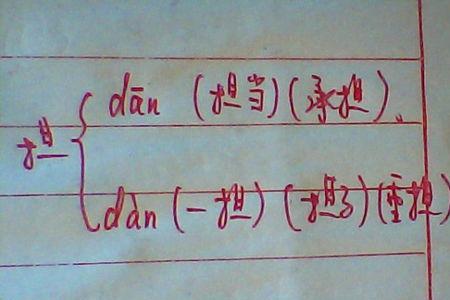 担
dān (担当)(承担)、
dàn (一担) (担子)(重担)